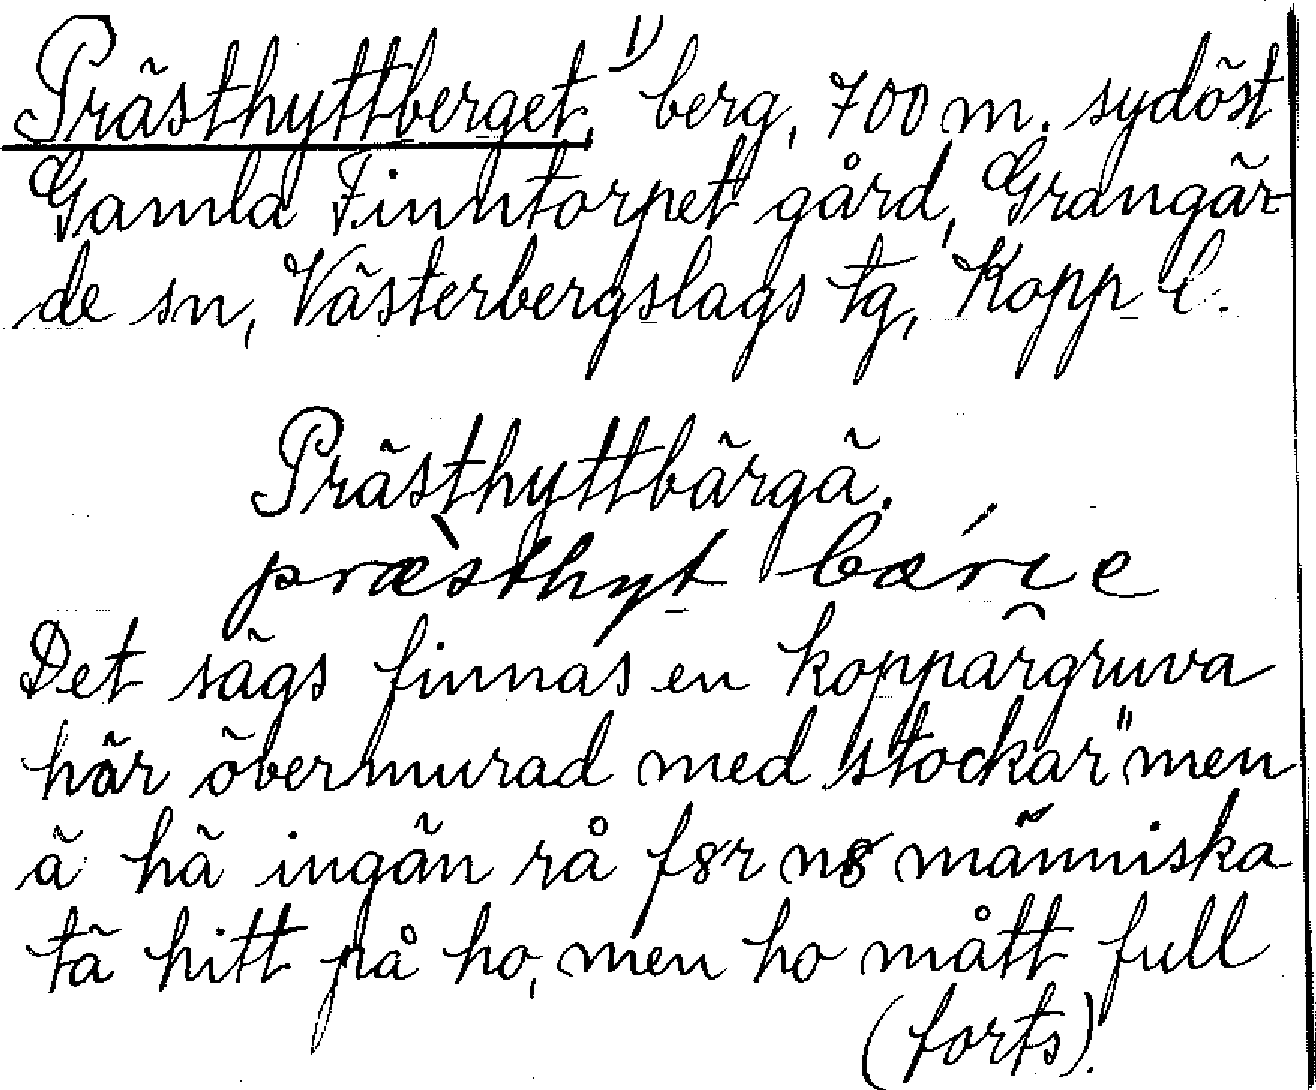 Prästhyttberget, 1) berg, 700 m. sydöst
Gamla Finntorpet gård, Grangär-
de sn, Västerbergslags tg, Kopp. l.
Prästhyttbärgä.
præ̀sthyt bǽrıe
Det sägs finnas en kopparg̑ruva
här övermurad med stockar "men
ä hä ingän rå f8r n8 människa
tä hitt på ho, men ho mått full
(forts).